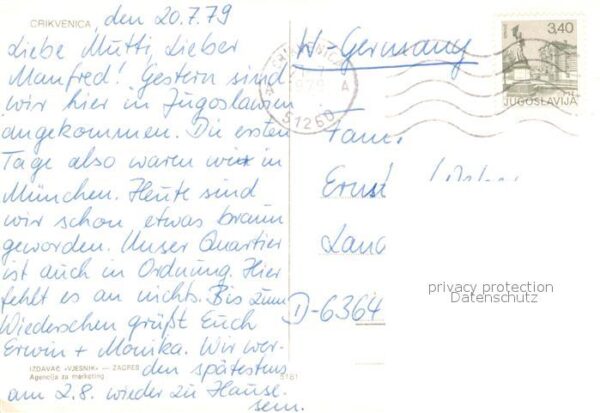 CRIKVENICA, den 20.7.79
Liebe Mutti, Lieber
Manfred! Gestern sind
wir hier in Jugoslawien
angekommen. Die ersten
Tage also waren wir in
München. Heute sind
wir schon etwas braun
geworden. Unser Quartier
ist auch in Ordnung. Hier
fehlt es an nichts. Bis zum
Wiedersehen grüßt Euch
Erwin + Monika. Wir wer-
den spätestens
am 2.8. wieder zu Hause
sein.
IZDAVAČ »VJESNIK« — ZAGREB
Agencija za marketing
5781
W-Germany
3,40
JUGOSLAVIJA
51260
A
Fam.
Ernst
D-6364
privacy protection
Datenschutz